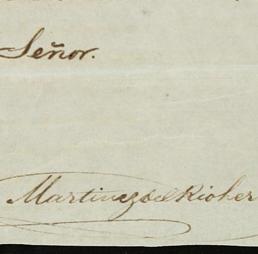 Señor.
Martinez del Rio her